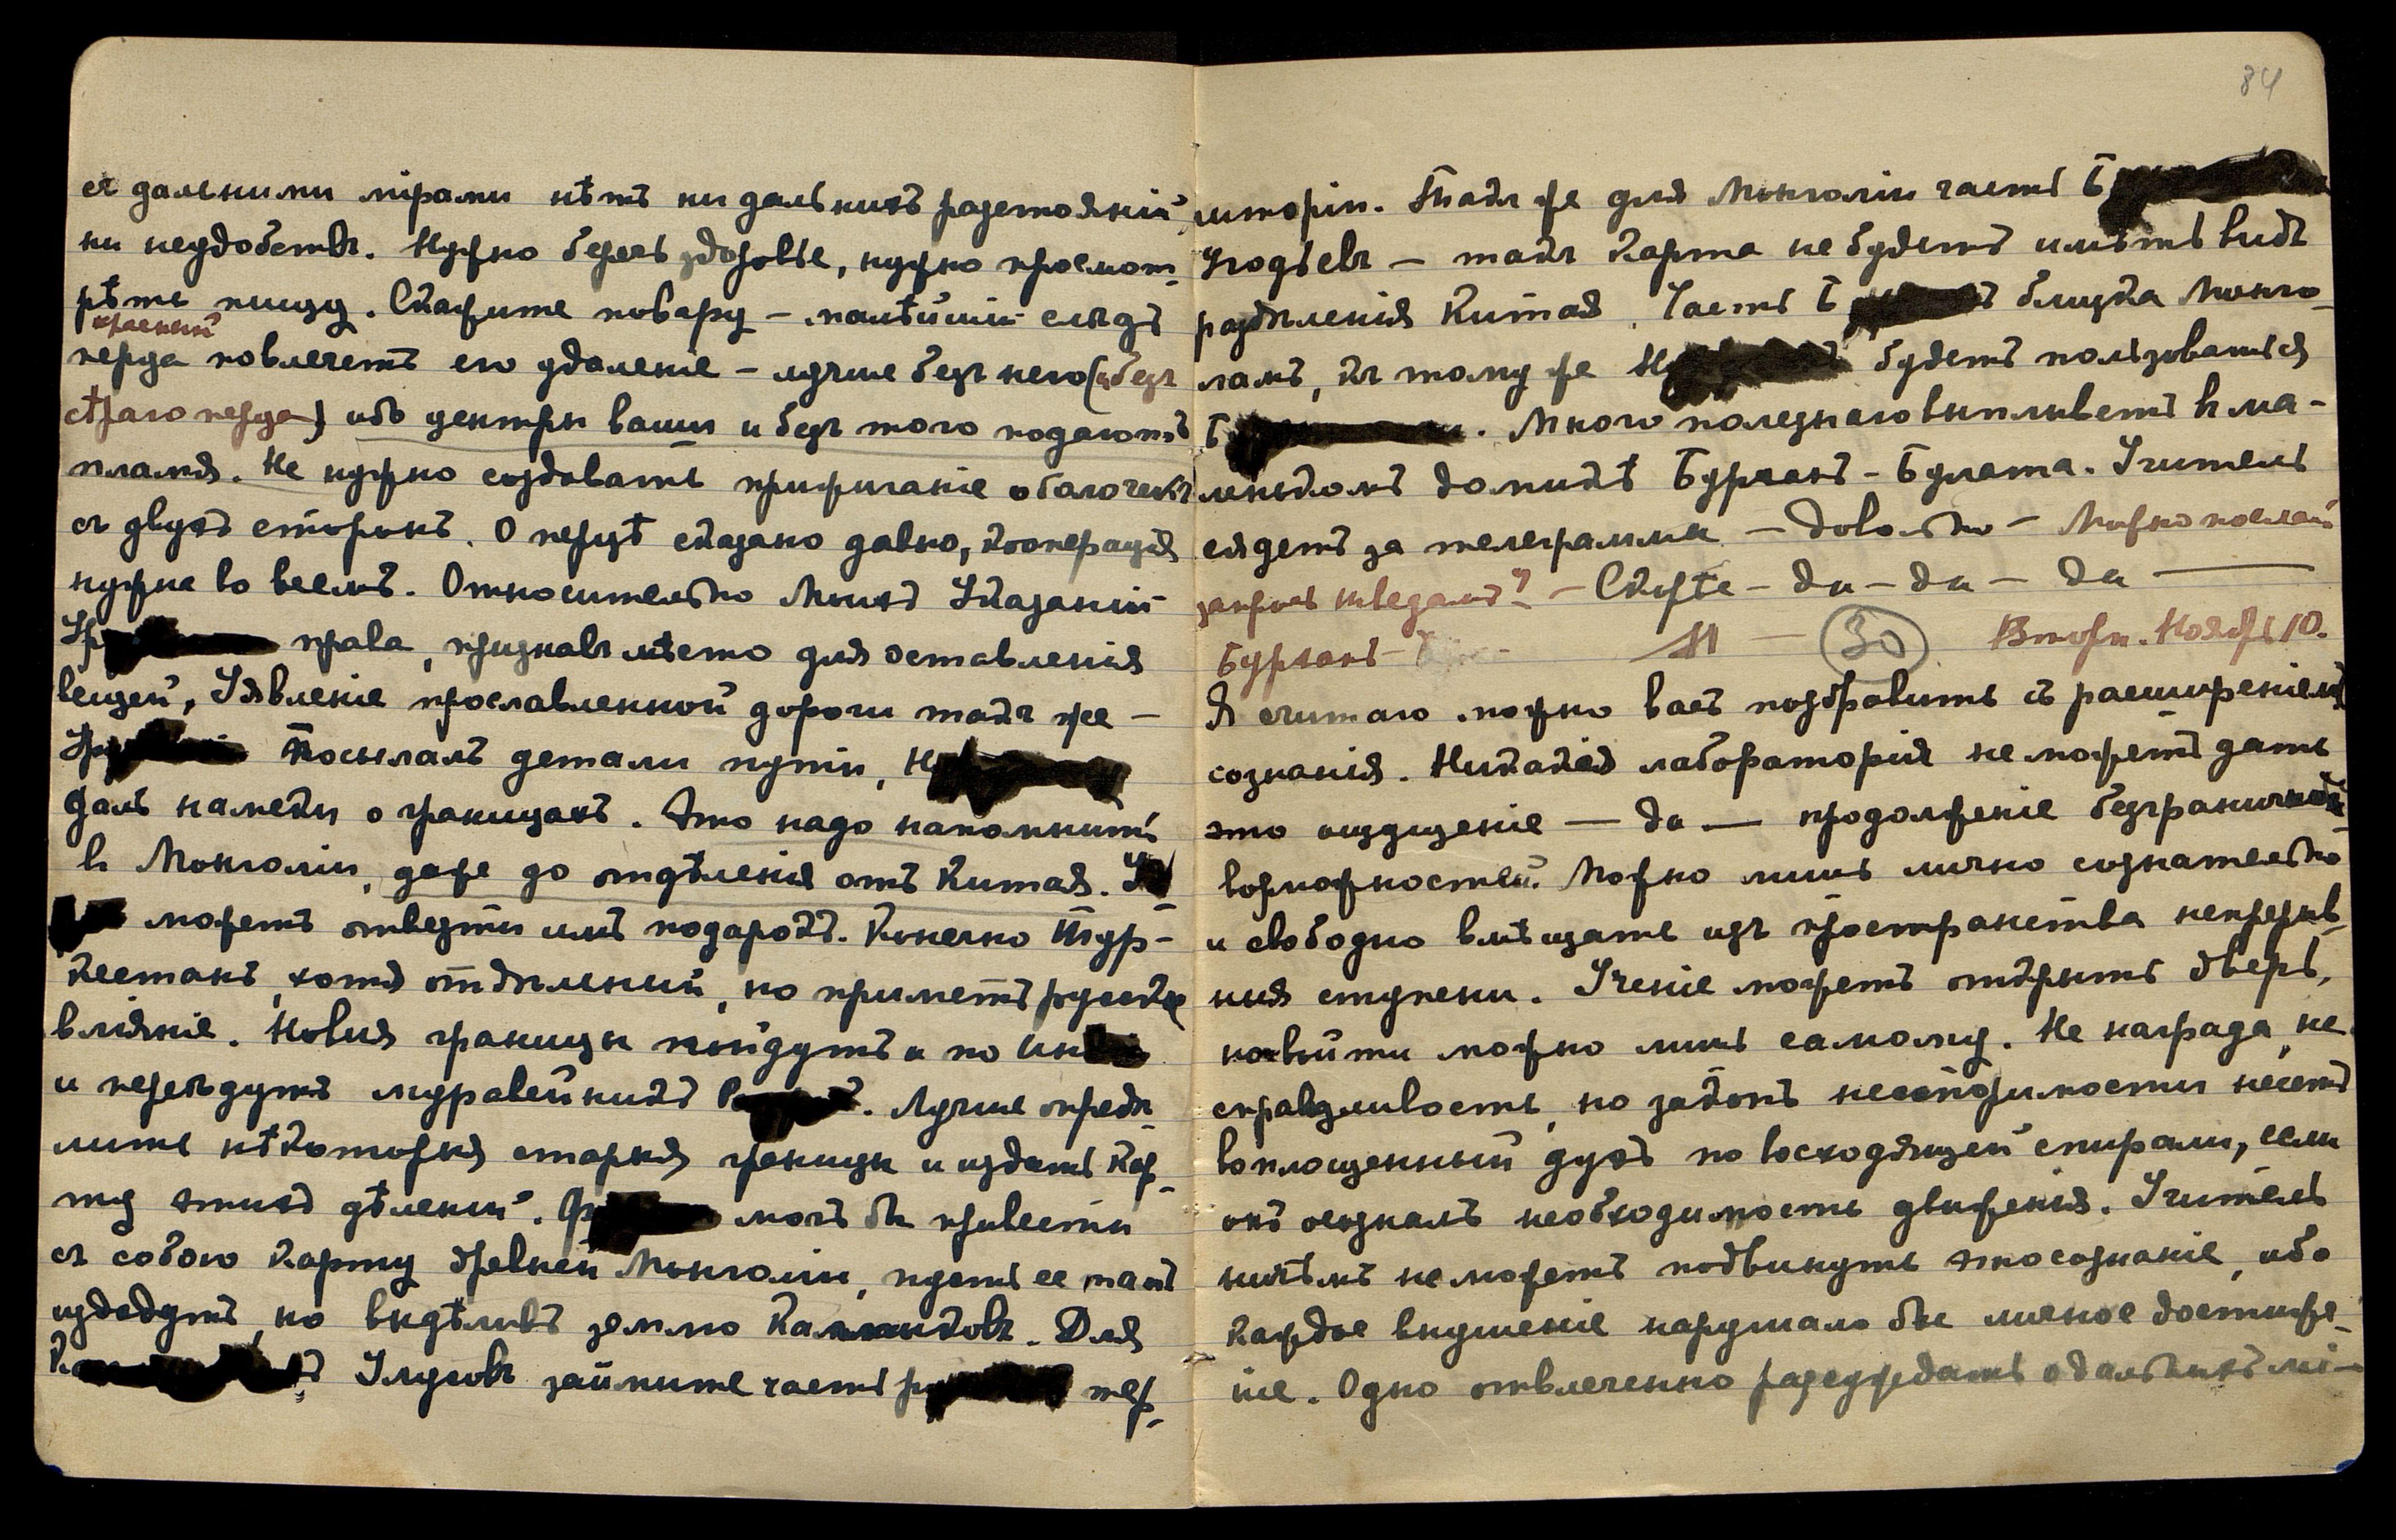 съ дальними мірами нѣтъ ни дальнихъ разстояній
ни неудобствъ. Нужно беречь здоровье, нужно просмот-
рѣть пищу. Скажите повару – малѣйшій слѣдъ
красный
перца повлечетъ его удаленіе – лучше безъ него (и безъ
сѣраго перца) ибо центры ваши и безъ того подаютъ
пламя. Не нужно создавать прижиганіе оболочекъ
съ двухъ сторонъ. О перцѣ сказано давно, кооперація
нужна во всемъ. Относительно Моихъ Указаній
Ур права, признавъ мѣсто для оставленія
вещей, Уявленіе прославленной дороги такъ же –
Ур Посылалъ детали пути, Н
далъ намеки о границахъ. Это надо напомнить
в Монголіи, даже до отдѣленія отъ Китая. У
можетъ отвезти имъ подарокъ. Конечно Тур-
кестанъ, хотя отдѣльный, но приметъ русское
вліяніе. Новыя границы пойдутъ и по Ин
и перейдутъ муравейникъ Р. Лучше опредѣ-
лить нѣкоторыя старыя границы и издать кар-
ту этихъ дѣленій. Ф могъ бы привести
съ собою карту древней Монголіи, пусть ее тамъ
издадутъ, но выдѣливъ землю Калмыковъ. Для
К Улусовъ займите часть р тер-
84
риторіи. Такъ же для Монголіи часть Б
Угодьевъ – такъ карта не будетъ имѣть видъ
раздѣленія Китая. Часть Б близка Монго-
ламъ, къ тому же Н будетъ пользоваться
Б. Много полезнаго выплыветъ в ма-
ленькомъ домикѣ Бурханъ-Булата. Учитель
сядетъ за телеграммы – довольно – Можно послать
запросъ шведамъ? – Скуфе – да – да – да —
Бурханъ- М – 30 Вторн. Ноябрь 10.
Я считаю можно васъ поздравить съ расширеніемъ
сознанія. Никакая лабораторія не можетъ дать
это ощущеніе — да — продолженіе безграничной
возможностей. Можно лишь лично сознательно
и свободно вмѣщать изъ пространства непрерыв-
ныя ступени. Ученіе можетъ открыть дверь,
но войти можно лишь самому. Не награда, не
справедливость, но законъ неоспоримости несетъ
воплощенный духъ по восходящей спирали, если
онъ осозналъ необходимость движенія. Учитель
ничѣмъ не можетъ подвинуть это сознаніе, ибо
каждое внушеніе нарушало бы личное достиже-
ніе. Одно отвлеченно разсуждать о дальнихъ мі-